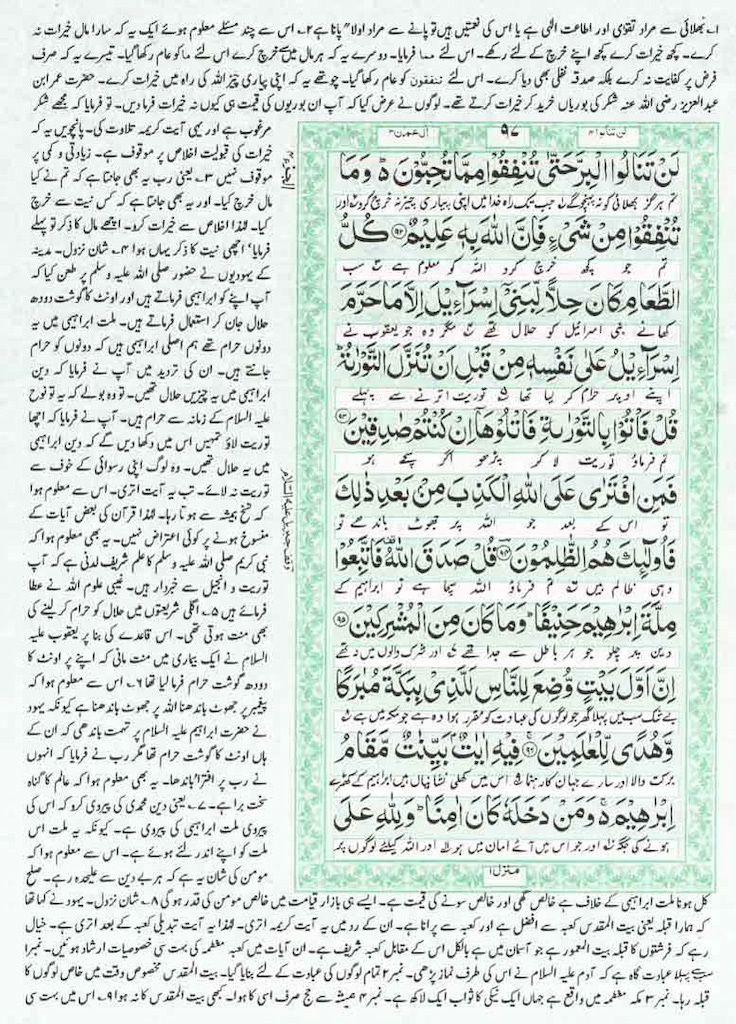 ۱۔ بھلائی سے مراد تقویٰ اور اطاعت الٰہی ہے یا اس کی نعمتیں ہوتو پانے سے مراد اولاً پانا ہے ۲۔ اس سے چند مسئلے معلوم ہوئے ایک یہ کہ سارا مال خیرات نہ
کرے۔ کچھ خیرات کرے کچھ اپنے خرچ کے لئے رکھے۔ اس لئے مما فرمایا۔ دوسرے یہ کہ ہر مال میں سے خرچ کرے اس لئے ما کو عام رکھا گیا۔ تیسرے یہ کہ صرف
فرض پر کفایت نہ کرے بلکہ صدقہ نفلی بھی دیا کرے۔ اس لئے تنفقون کو عام رکھا گیا۔ چوتھے یہ کہ اپنی پیاری چیز اللہ کی راہ میں خیرات کرے۔ حضرت عمر ابن
عبدالعزیز رضی اللہ عنہ شکر کی بوریاں خرید کر خیرات کرتے تھے۔ لوگوں نے عرض کیا کہ آپ ان بوریوں کی قیمت ہی کیوں نہ خیرات فرما دیں۔ تو فرمایا کہ مجھے شکر
لن تنالوا ۴
۹۷
اٰل عمرٰن ۳
لَنْ تَنَالُوا الْبِرَّ حَتّٰى تُنْفِقُوْا مِمَّا تُحِبُّوْنَ ؕ وَمَا
تم ہرگز بھلائی کو نہ پہنچو گے جب تک راہ خدا میں اپنی پیاری چیز نہ خرچ کرو اور
تُنْفِقُوْا مِنْ شَیْءٍ فَاِنَّ اللّٰهَ بِهٖ عَلِیْمٌ ۹۲ كُلُّ
تم جو کچھ خرچ کرو اللہ کو معلوم ہے سب
الطَّعَامِ كَانَ حِلًّا لِّبَنِیْۤ اِسْرَآءِیْلَ اِلَّا مَا حَرَّمَ
کھانے بنی اسرائیل کو حلال تھے مگر وہ جو یعقوب نے
اِسْرَآءِیْلُ عَلٰى نَفْسِهٖ مِنْ قَبْلِ اَنْ تُنَزَّلَ التَّوْرٰىةُ ؕ
اپنے اوپر حرام کر لیا تھا توریت اترنے سے پہلے
قُلْ فَاْتُوْا بِالتَّوْرٰىةِ فَاتْلُوْهَاۤ اِنْ كُنْتُمْ صٰدِقِیْنَ ۹۳
تم فرماؤ توریت لا کر پڑھو اگر سچے ہو
فَمَنِ افْتَرٰى عَلَى اللّٰهِ الْكَذِبَ مِنْۢ بَعْدِ ذٰلِكَ
تو اس کے بعد جو اللہ پر جھوٹ باندھے تو
فَاُولٰٓىِٕكَ هُمُ الظّٰلِمُوْنَ ۹۴ قُلْ صَدَقَ اللّٰهُ فَاتَّبِعُوْا
وہی ظالم ہیں تم فرماؤ اللہ سچا ہے تو ابراہیم کے
مِلَّةَ اِبْرٰهِیْمَ حَنِیْفًا ؕ وَمَا كَانَ مِنَ الْمُشْرِكِیْنَ ۹۵
دین پر چلو جو ہر باطل سے جدا تھے اور شرک والوں میں نہ تھے
اِنَّ اَوَّلَ بَیْتٍ وُّضِعَ لِلنَّاسِ لَلَّذِیْ بِبَكَّةَ مُبٰرَكًا
بے شک سب میں پہلا گھر جو لوگوں کی عبادت کو مقرر ہوا وہ ہے جو مکہ میں ہے
وَّهُدًى لِّلْعٰلَمِیْنَ ۹۶ فِیْهِ اٰیٰتٌۢ بَیِّنٰتٌ مَّقَامُ
برکت والا اور سارے جہان کا رہنما اس میں کھلی نشانیاں ہیں ابراہیم کے کھڑے
اِبْرٰهِیْمَ ۚ وَمَنْ دَخَلَهٗ كَانَ اٰمِنًا ؕ وَلِلّٰهِ عَلَى
ہونے کی جگہ اور جو اس میں آئے امان میں ہو اور اللہ کیلئے لوگوں پر
منزل ۱
وقف جبریل علیہ السلام
مرغوب ہے اور یہی آیت کریمہ تلاوت کی۔ پانچویں یہ کہ
خیرات کی قبولیت اخلاص پر موقوف ہے۔ زیادتی و کمی پر
موقوف نہیں ۳۔ یعنی رب یہ بھی جانتا ہے کہ تم نے کیا
مال خرچ کیا۔ اور یہ بھی جانتا ہے کہ کس نیت سے خرچ
کیا۔ لہٰذا اخلاص سے خیرات کرو۔ اچھے مال کا ذکر تو پہلے
فرمایا، اچھی نیت کا ذکر یہاں ہوا ۴۔ شان نزول۔ مدینہ
کے یہودیوں نے حضور صلی اللہ علیہ وسلم پر طعن کیا کہ
آپ اپنے کو ابراہیمی فرماتے ہیں اور اونٹ کا گوشت دودھ
حلال جان کر استعمال فرماتے ہیں۔ ملت ابراہیمی میں یہ
دونوں حرام تھے ہم اصلی ابراہیمی ہیں کہ دونوں کو حرام
جانتے ہیں۔ ان کی تردید میں آپ نے فرمایا کہ دین
ابراہیمی میں یہ چیزیں حلال تھیں۔ تو وہ بولے کہ یہ تو نوح
علیہ السلام کے زمانہ سے حرام ہیں۔ آپ نے فرمایا کہ اچھا
توریت لاؤ تمہیں اس میں دکھا دیں گے کہ دین ابراہیمی
میں یہ حلال تھیں۔ وہ لوگ اپنی رسوائی کے خوف سے
توریت نہ لائے۔ تب یہ آیت اتری۔ اس سے معلوم ہوا
کہ نسخ ہمیشہ سے ہوتا رہا۔ لہٰذا قرآن کی بعض آیات کے
منسوخ ہونے پر کوئی اعتراض نہیں۔ یہ بھی معلوم ہوا کہ
نبی کریم صلی اللہ علیہ وسلم کا علم شریف لدنی ہے کہ آپ
توریت و انجیل سے خبردار ہیں۔ غیبی علوم اللہ نے عطا
فرمائے ہیں ۵۔ اگلی شریعتوں میں حلال کو حرام کر لینے کی
بھی منت ہوتی تھی۔ اس قاعدے کی بنا پر یعقوب علیہ
السلام نے ایک بیماری میں منت مانی کہ اپنے پر اونٹ کا
دودھ گوشت حرام فرما لیا تھا ۶۔ اس سے معلوم ہوا کہ
پیغمبر پر جھوٹ باندھنا اللہ پر جھوٹ باندھنا ہے کیونکہ یہود
نے حضرت ابراہیم علیہ السلام پر تہمت باندھی کہ ان کے
ہاں اونٹ کا گوشت حرام تھا مگر رب نے فرمایا کہ انہوں
نے رب پر افترا باندھا۔ یہ بھی معلوم ہوا کہ عالم کا گناہ
سخت برا ہے۔ ۷۔ یعنی دین محمدی کی پیروی کرو کہ اس کی
پیروی ملت ابراہیمی کی پیروی ہے۔ کیونکہ یہ ملت اس
ملت کو اپنے اندر لئے ہوئے ہے۔ اس سے معلوم ہوا کہ
مومن کی شان یہ ہے کہ ہر بے دین سے علیحدہ رہے۔ صلح
کل ہونا ملت ابراہیمی کے خلاف ہے خالص گھی اور خالص سونے کی قیمت ہے۔ ایسے ہی بازار قیامت میں خالص مومن کی قدر ہو گی ۸۔ شان نزول۔ یہود نے کہا تھا
کہ ہمارا قبلہ یعنی بیت المقدس کعبہ سے افضل ہے اور کعبہ سے پرانا ہے۔ ان کے رد میں یہ آیت کریمہ اتری۔ لہٰذا یہ آیت تبدیلی کعبہ کے بعد اتری ہے۔ خیال
رہے کہ فرشتوں کا قبلہ بیت المعمور ہے جو آسمان میں ہے بالکل اس کے مقابل کعبہ شریف ہے۔ ان آیات میں کعبہ معظمہ کی بہت سی خصوصیات ارشاد ہوئیں۔ نمبر۱
سب سے پہلا عبادت گاہ ہے کہ آدم علیہ السلام نے اس کی طرف نماز پڑھی۔ نمبر ۲ تمام لوگوں کی عبادت کے لئے بنایا گیا۔ بیت المقدس مخصوص وقت میں خاص لوگوں کا
قبلہ رہا۔ نمبر ۳ مکہ معظمہ میں واقع ہے جہاں ایک نیکی کا ثواب ایک لاکھ ہے۔ نمبر ۴ ہمیشہ سے حج صرف اسی کا ہوا۔ کبھی بیت المقدس کا نہ ہوا ۹۔ اس میں بہت سی